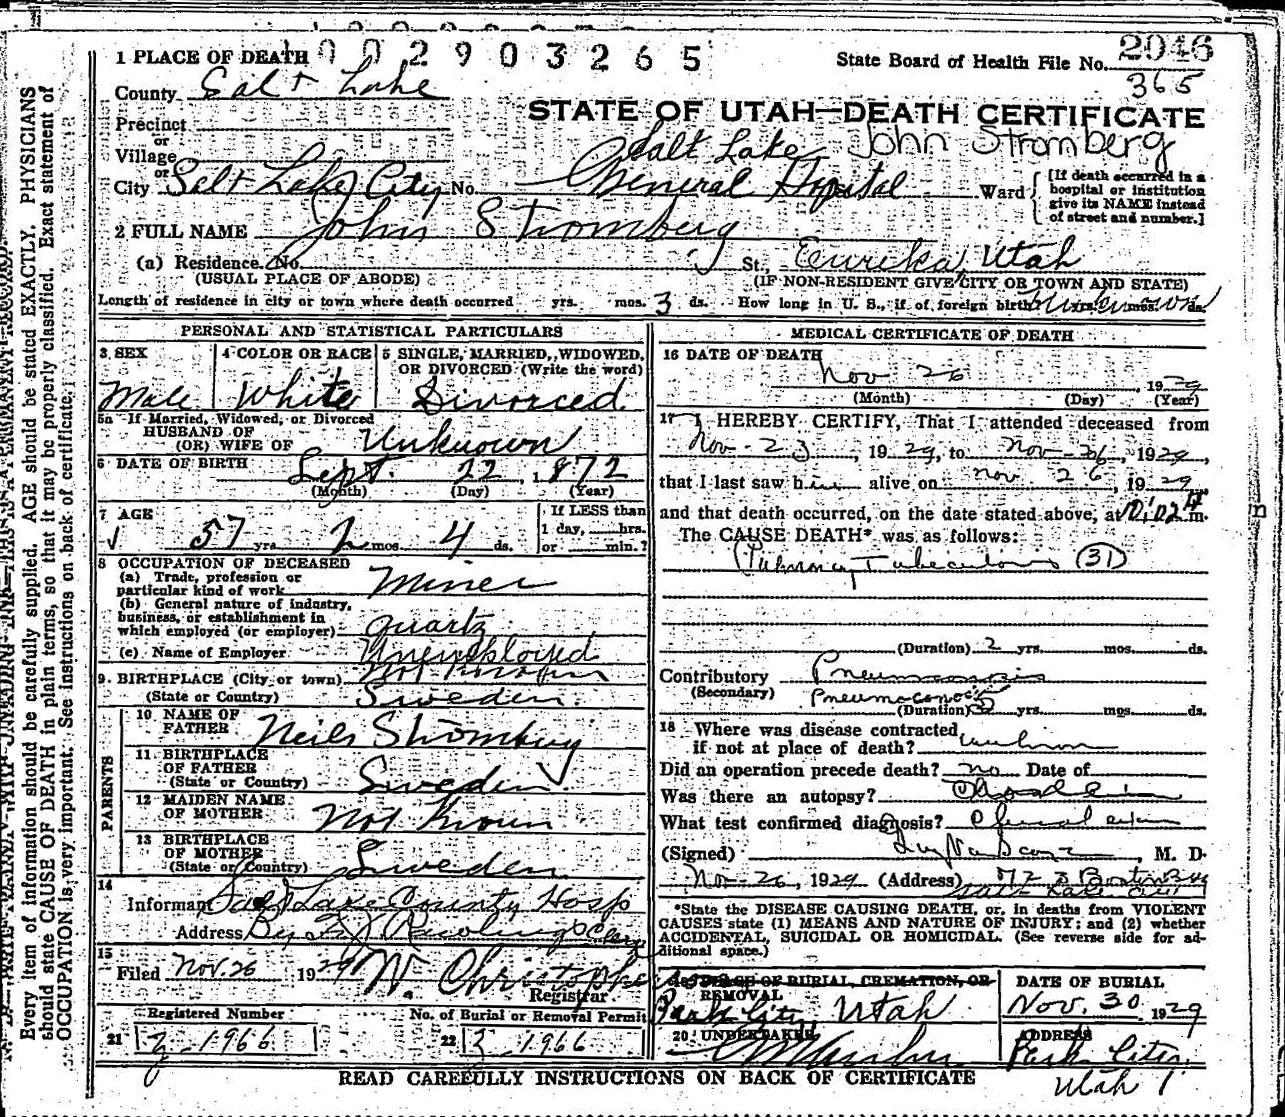 1 PLACE OF DEATH
1002903265
State Board of Health File No. 2046
365
County Salt Lake
STATE OF UTAH—DEATH CERTIFICATE
Precinct
or
Village
John Stromberg
or
City Salt Lake City No. Salt Lake General Hospital Ward
[If death occurred in a hospital or institution give its NAME instead of street and number.]
2 FULL NAME John Stromberg
(a) Residence. No. St., Eureka, Utah
(USUAL PLACE OF ABODE) (IF NON-RESIDENT GIVE CITY OR TOWN AND STATE)
Length of residence in city or town where death occurred yrs. mos. 3 ds. How long in U. S., if of foreign birth? Unknown yrs. mos. ds.
PERSONAL AND STATISTICAL PARTICULARS
3 SEX
Male
4 COLOR OR RACE
White
5 SINGLE, MARRIED, WIDOWED,
OR DIVORCED (Write the word)
Divorced
5a If Married, Widowed, or Divorced
HUSBAND OF
(OR) WIFE OF Unknown
6 DATE OF BIRTH Sept. 22, 1872
(Month) (Day) (Year)
7 AGE
57 yrs. 2 mos. 4 ds.
If LESS than
1 day, hrs.
or min.?
8 OCCUPATION OF DECEASED
(a) Trade, profession or
particular kind of work Miner
(b) General nature of industry,
business, or establishment in
which employed (or employer) quartz
(c) Name of Employer Unemployed
9. BIRTHPLACE (City or town) Not Known
(State or Country) Sweden
PARENTS
10 NAME OF
FATHER Neils Stromberg
11 BIRTHPLACE
OF FATHER
(State or Country) Sweden
12 MAIDEN NAME
OF MOTHER Not Known
13 BIRTHPLACE
OF MOTHER
(State or Country) Sweden
14
Informant Salt Lake County Hosp
Address By Rawlings Clerk
15
Filed Nov. 26 1929 W. Christopherson
Registrar
Registered Number No. of Burial or Removal Permit
21 1966 22 1966
MEDICAL CERTIFICATE OF DEATH
16 DATE OF DEATH
Nov 26, 1929
(Month) (Day) (Year)
17 I HEREBY CERTIFY, That I attended deceased from
Nov - 23, 1929, to Nov - 26, 1929,
that I last saw him alive on Nov. 26, 1929
and that death occurred, on the date stated above, at 10:02 m.
The CAUSE DEATH* was as follows:
Pulmonary Tuberculosis (31)
(Duration) 2 yrs. mos. ds.
Contributory Pneumoconosis
(Secondary) Pneumoconosis
(Duration) yrs. mos. ds.
18 Where was disease contracted
if not at place of death? unknown
Did an operation precede death? no Date of
Was there an autopsy?
What test confirmed diagnosis?
(Signed) , M. D.
Nov - 26, 1929 (Address) Boston Bldg
Salt Lake City
*State the DISEASE CAUSING DEATH, or, in deaths from VIOLENT
CAUSES state (1) MEANS AND NATURE OF INJURY; and (2) whether
ACCIDENTAL, SUICIDAL OR HOMICIDAL. (See reverse side for additional space.)
PLACE OF BURIAL, CREMATION, OR
REMOVAL
Park City Utah
DATE OF BURIAL
Nov. 30 1929
20 UNDERTAKER
ADDRESS
Park City,
Utah
READ CAREFULLY INSTRUCTIONS ON BACK OF CERTIFICATE
Every item of information should be carefully supplied. AGE should be stated EXACTLY. PHYSICIANS
should state CAUSE OF DEATH in plain terms, so that it may be properly classified. Exact statement of
OCCUPATION is very important. See instructions on back of certificate.